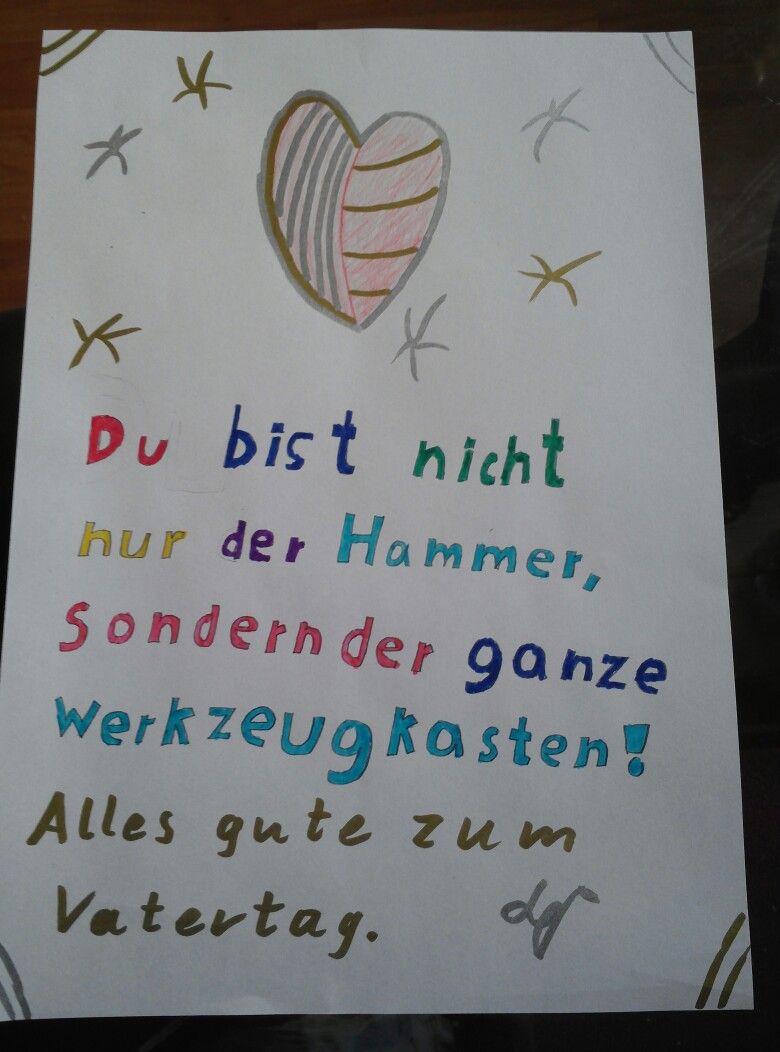 Du bist nicht
nur der Hammer,
Sondern der ganze
Werkzeugkasten!
Alles gute zum
Vatertag.